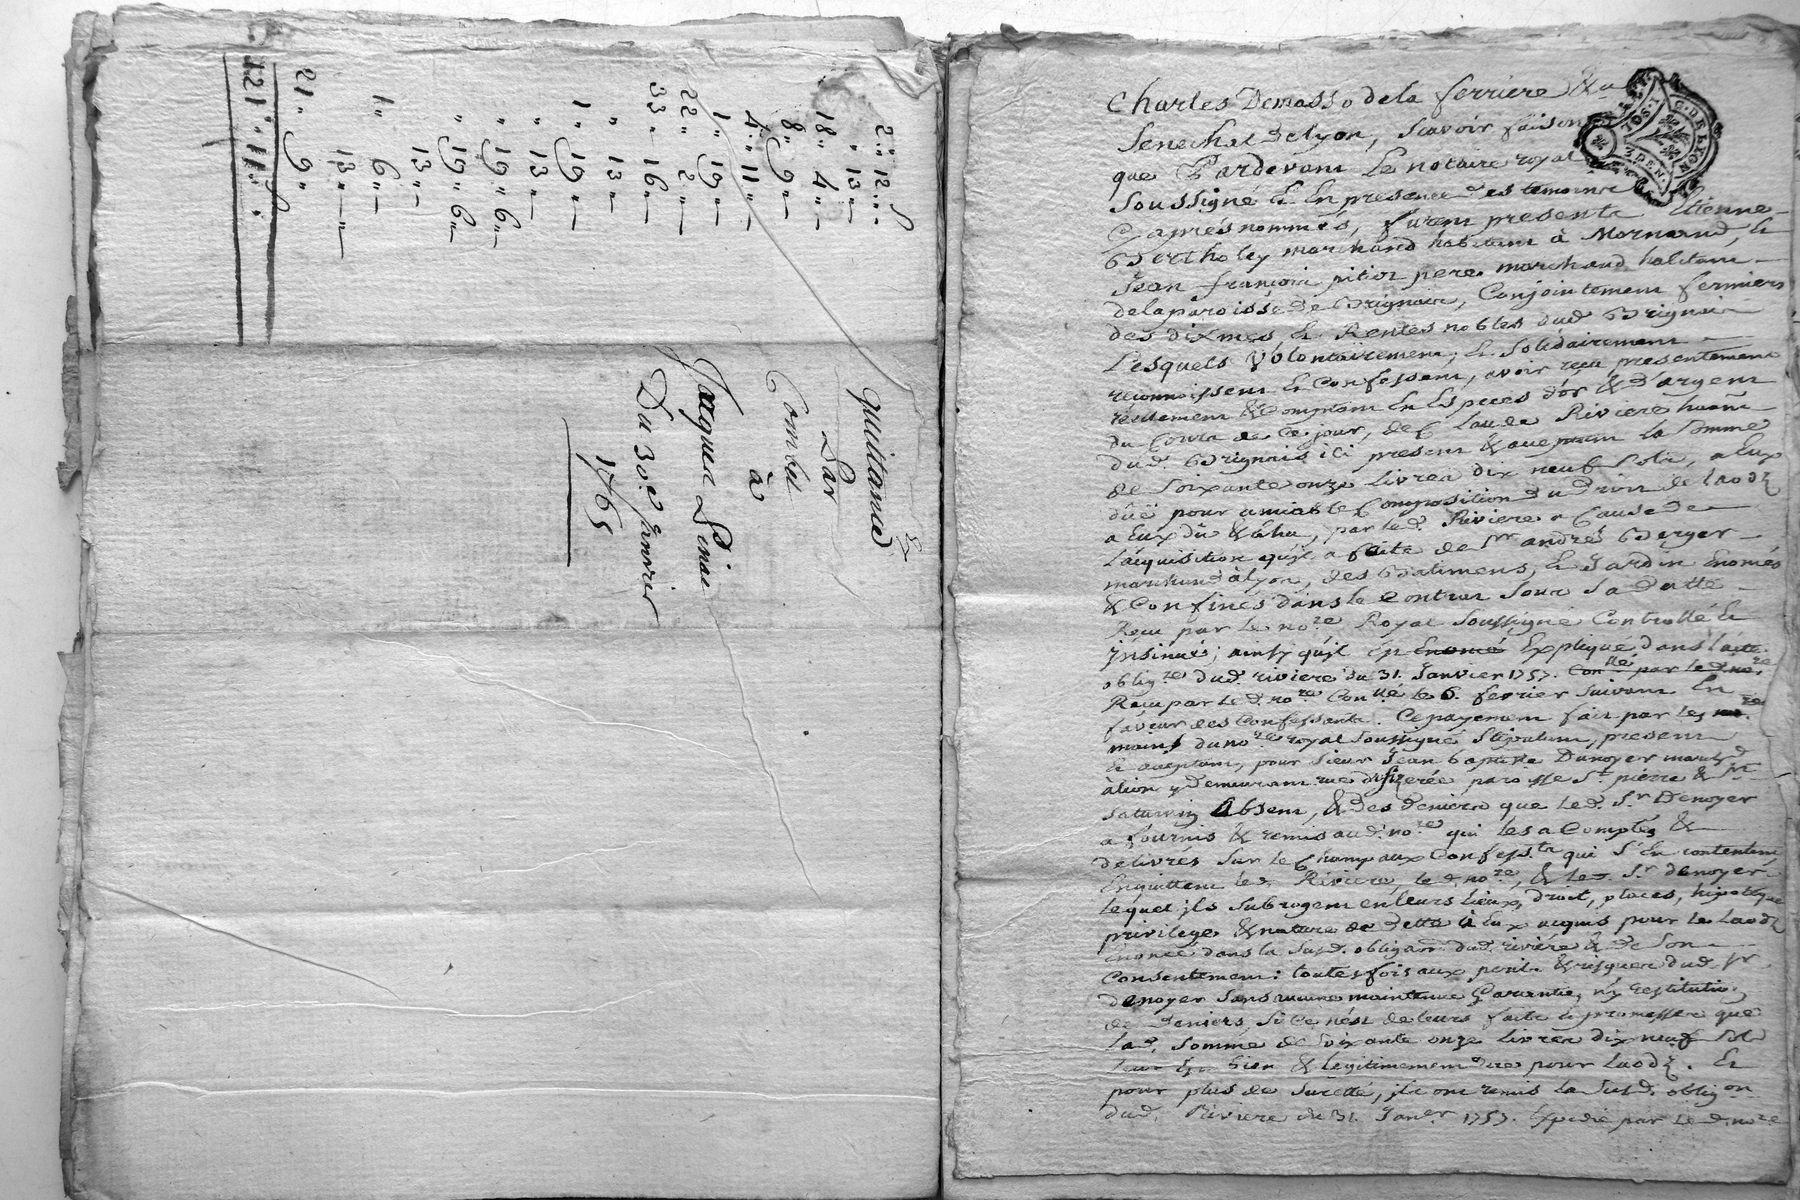 2 " 12 "
" 13 "
18 " 4 "
8 " 9 "
4 " 11 "
1 " 19 "
22 " 2 "
33 " 16 "
1 " 19 "
" 13 "
" 13 "
" 19 " 6
" 19 " 6
" 13 "
1 " 6 "
" 13 "
21 " 9 "
121 " 11 "
quittance
Par
Combet
à
Jacques
Du 30e Janvier
1765
G. DE LYON
Charles Demasso dela ferriere &a
Senechal de lyon, scavoir faisons
que Pardevant Le notaire royal
Soussigné & En presence des temoins
Cy aprés nommés, furent presents Etienne
Bertholey marchand habitant à Mornand, &
Jean françois pitiot pere marchand habitant
dela paroisse de Brignais, Conjointement fermiers
des dixmes, & Rentes nobles dud. Brignais
Lesquels Volontairement, & Solidairement
reconnoissent & Confessent, avoir reçu presentement
réellement & Comptant En Especes d'or & d'argent
du Cours de Ce jour, de Claude Riviere habt
dud. Brignais ici present & aceptant la Somme
de Soixante onze Livres dix neuf Sols, a Eux
dûë pour amiable Composition du Droit de Laodz
a Eux dû & échu, par led. Riviere a Cause de
l'acquisition qu'jl a faite de Sr andré Berger
marchand à Lyon, des Batimens, & Jardin Enoncés
& Confinés dans le Contrat Sous Sa Datte
Reçu par le nore Royal Soussigné Controllé &
jnsinué; ainsy qu'jl est Enoncé Expliqué dans l'acte
obligre dud. riviere du 31. Janvier 1757. Conllé par led. nore
Reçu par led. nore Conllé le 6. fevrier Suivant En
faveur des Confessants. Ce payement fait par les
mains du nore royal Soussigné Stipulant, present
& aceptant, pour Sieur Jean Baptiste Denoyer marchd
à lion y demeurant rue paroisse St pierre & St
Saturnin Absent, & des deniers que led. Sr Denoyer
a fournis & remis aud. nore qui les a Comptés &
delivrés Sur le Champ aux Confessts qui S'En contentent
Enquittent led. Riviere, led. nore, & led. Sr denoyer
lequel jls Subrogent en leurs lieux, droit, places, hipoteque
privilege & nature de Dette à Eux acquis pour le Laodz
énoncé dans la Susd. obligaon dud. riviére & de Son
Consentement: toutesfois aux perils & risques dud. Sr
denoyer Sans aucune maintenue Garantie, n'y restitution
de Deniers, Si Ce n'est de leurs faits & promesses que
lad. Somme de Soixante onze livres dix neuf Sols
Leur Est bien & legitimement due pour Laodz. Et
pour plus de Sureté, jls ont remis la Susd. obligon
dud. Riviere du 31. Janer 1757. Expedié par led. nore